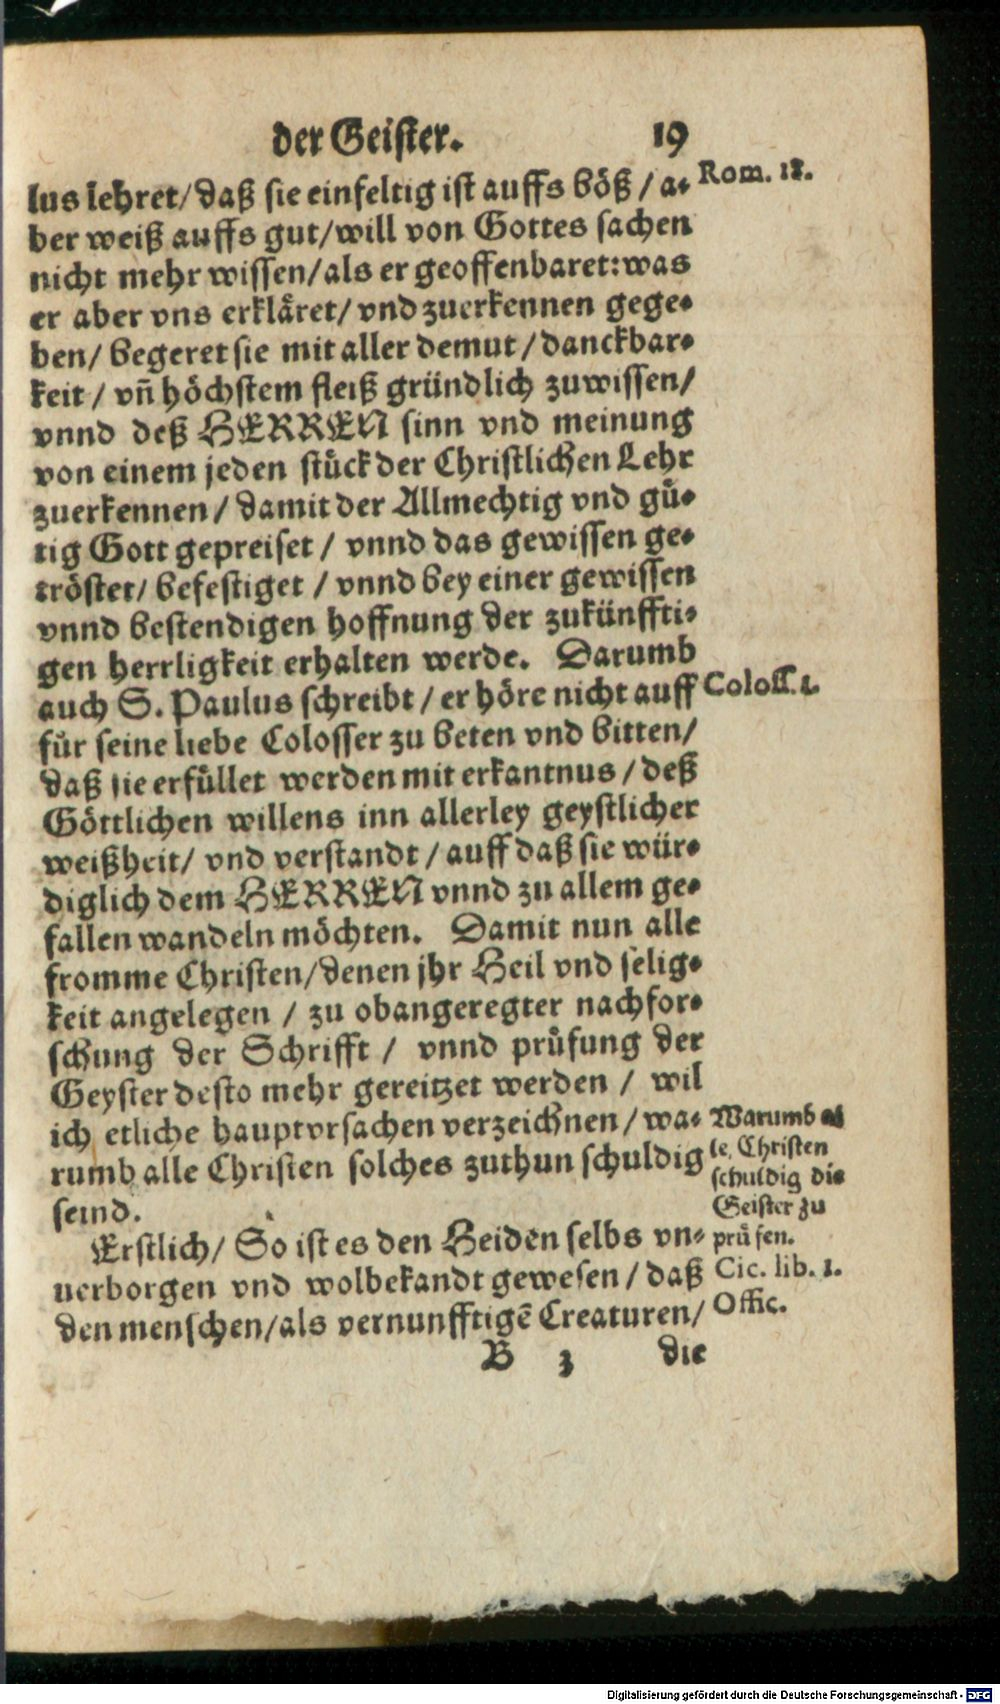 der Geister. 19
lus lehret/ daß sie einfeltig ist auffs böß / a-
Rom. 18.
ber weiß auffs gut/will von Gottes sachen
nicht mehr wissen/als er geoffenbaret: was
er aber vns erkläret/ vnd zuerkennen gege-
ben/ begeret sie mit aller demut / danckbar-
keit / vn̄ höchstem fleiß gründlich zuwissen/
vnnd deß HERREN sinn vnd meinung
von einem jeden stück der Christlichen Lehr
zuerkennen / damit der Allmechtig vnd gü-
tig Gott gepreiset / vnnd das gewissen ge-
tröstet/ befestiget / vnnd bey einer gewissen
vnnd bestendigen hoffnung der zukünffti-
gen herrligkeit erhalten werde. Darumb
auch S. Paulus schreibt / er höre nicht auff
Coloss. 1.
für seine liebe Colosser zu beten vnd bitten/
daß sie erfüllet werden mit erkantnus / deß
Göttlichen willens inn allerley geystlicher
weißheit/ vnd verstandt / auff daß sie wür-
diglich dem HERREN vnnd zu allem ge-
fallen wandeln möchten. Damit nun alle
fromme Christen/denen jhr Heil vnd selig-
keit angelegen / zu obangeregter nachfor-
schung der Schrifft / vnnd prüfung der
Geyster desto mehr gereitzet werden / wil
ich etliche hauptvrsachen verzeichnen / wa-
rumb alle Christen solches zuthun schuldig
seind.
Warumb al
le Christen
schuldig die
Geister zu
prüfen.
Erstlich/ So ist es den Heiden selbs vn-
uerborgen vnd wolbekandt gewesen / daß
den menschen/als vernunfftigē Creaturen/
Cic. lib. 1.
Offic.
B 3 die
Digitalisierung gefördert durch die Deutsche Forschungsgemeinschaft - DFG